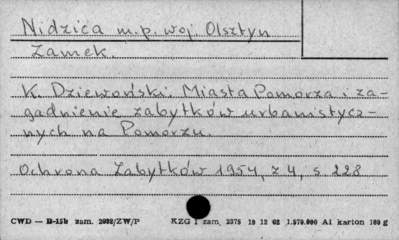 Nidzica m.p. woj. Olsztyn
Zamek.
K. Dziewoński. Miasta Pomorza i za-
gadnienie zabytków urbanistycz-
nych na Pomorzu.
Ochrona Zabytków 1954, z 4, s 228
CWD — B-15b zam. 2092/ZW/P KZG 1 zam. 2375 19 12 62 1.570.000 A1 karton 180 g